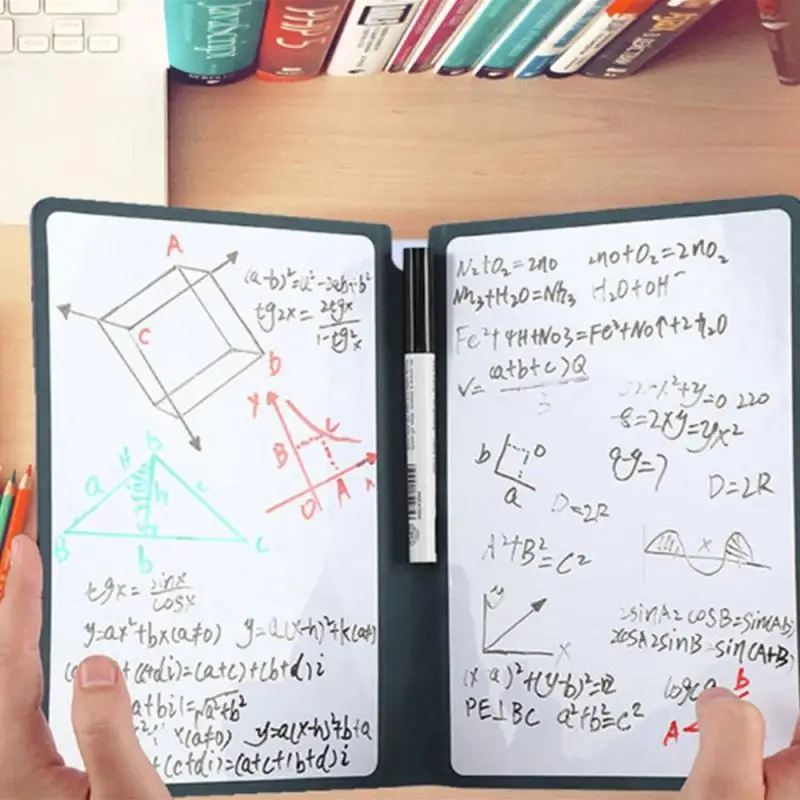 A
C
D
(a-b)²=a²-2ab+b²
tg2x=2tgx/1-tg²x
y
B
C
O
A
x
b
H
a
h
c
B
b
C
tgx=sinx/cosx
y=ax²+bx(a≠0) y=a(x-h)²+k(a≠
+(c+di)=(a+c)+(b+d)i
a+bi|=√a²+b²
x(a≠0) y=a(x-h)²+b+a
+(c+di)=(a+c+1b+d)i
N₂+O₂=2no 2no+O₂=2nO₂
Nh₃+H₂O=Nh₃ H₂O+OH⁻
Fe²+4H+NO3=Fe³+No↑+2h₂O
V=(a+b+c)Q/3
-x²+y=0 220
8=2xy=yx²
b
D
a
q-y=7
D=2R
D=2R
A²+B²=C²
x
y
x
2sinA2cosB=sin(Ab)
2cosA2sinB=sin(A+B)
a)²+(y-b)²=
PE⊥BC a²+b²=c²
logca
b
A<